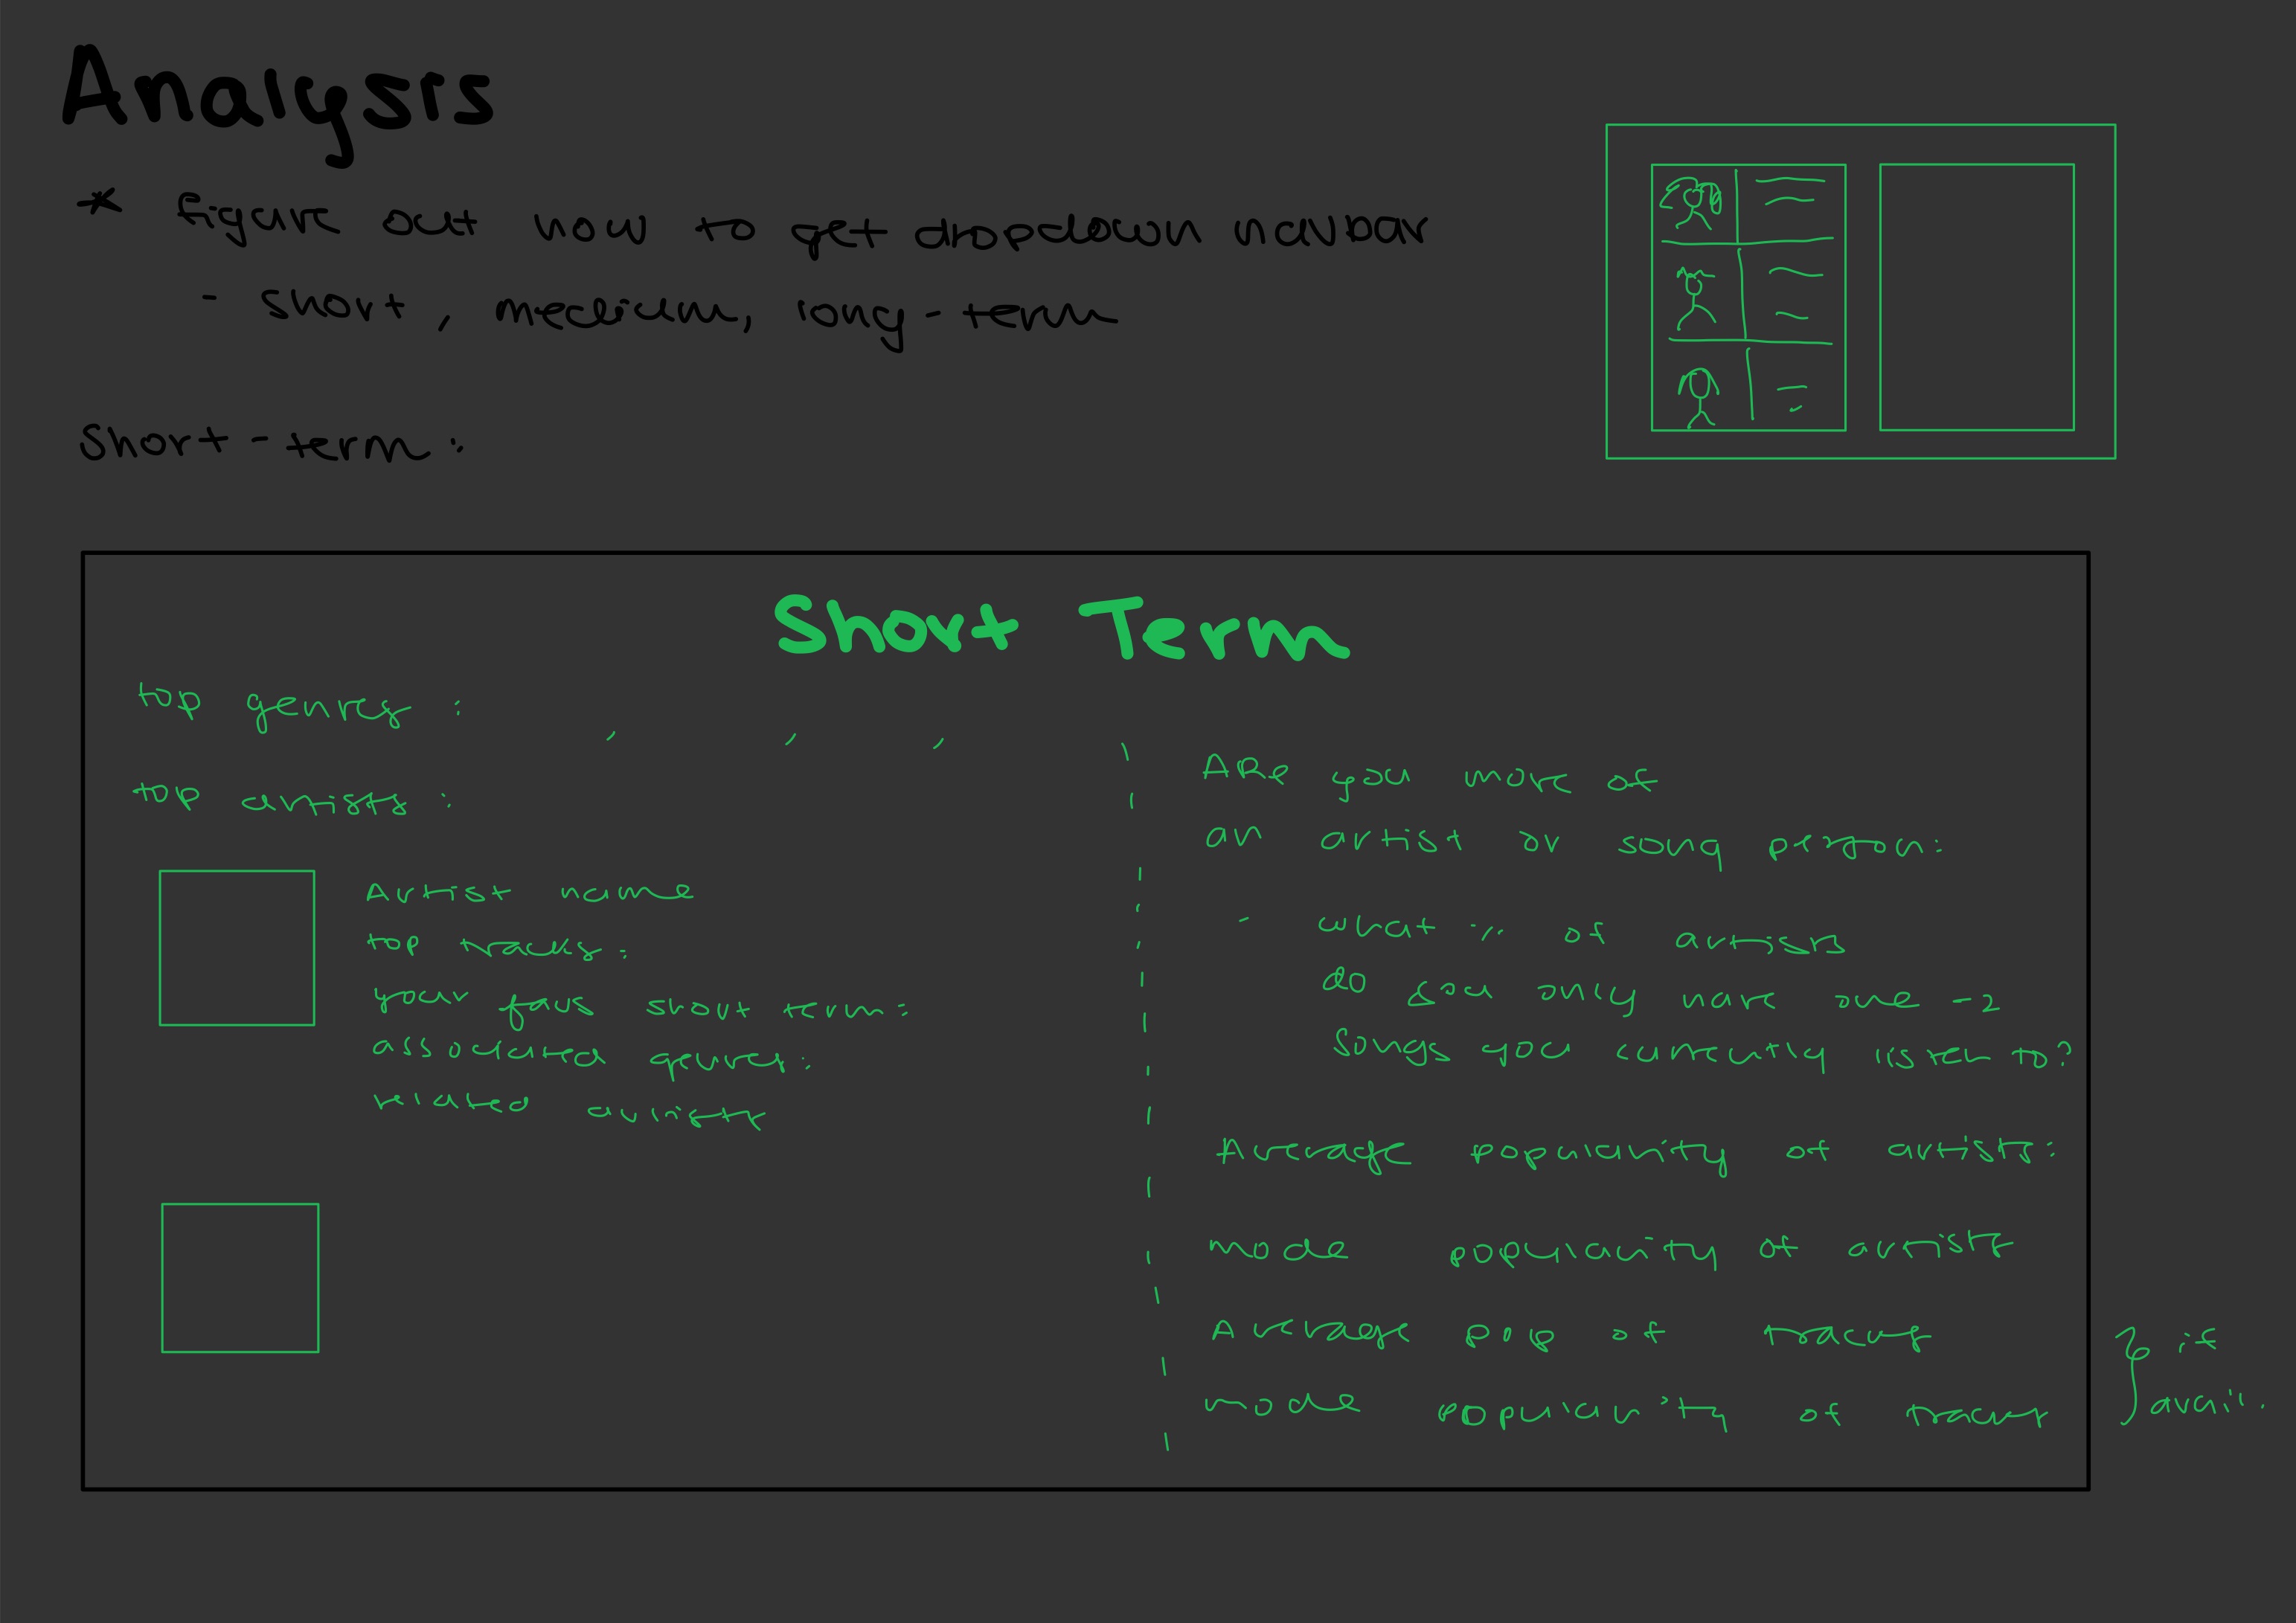 Analysis
* figure out how to get dropdown navbar
- short, medium, long-term
short-term:
Short Term
top genres: , , ,
top artists:
Artist name
top tracks:
your favs short term:
associated genres:
related artists
Are you more of
an artist or song person:
- what % of artists
do you only have one-2
songs you currently listen to?
Average popularity of artists:
mode popularity of artists
Average pop of tracks
mode popularity of tracks
} if
avail.